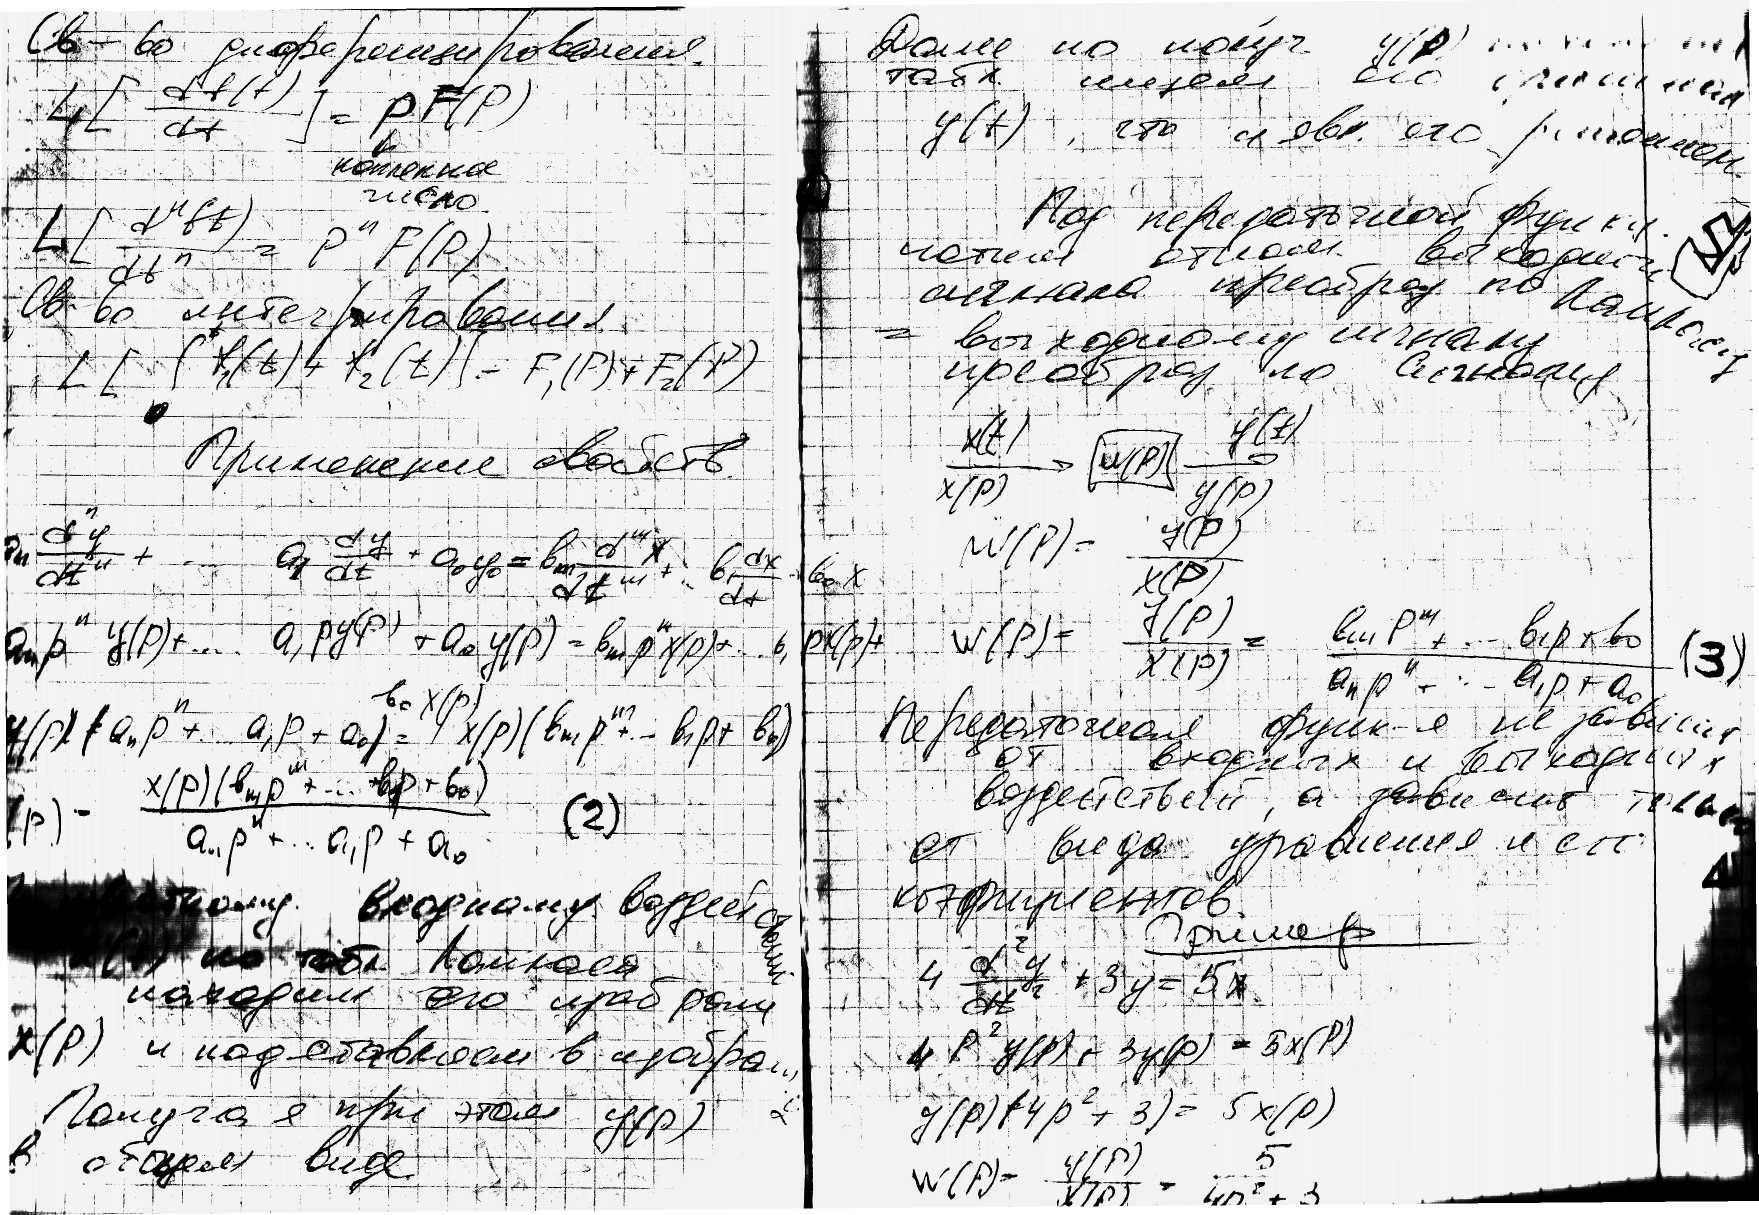 Св-во дифференцирования.
L[df(t)/dt] = pF(p)
комплексное
число.
L[dⁿf(t)/dtⁿ = Pⁿ F(P)
Св-во интегрирования.
L[f₁(t) + f₂(t)] = F₁(P) + F₂(P)
Применение свойств.
aₙ dⁿy/dtⁿ + ... a₁ dy/dt + a₀y₀ = bₘ dᵐx/dtᵐ + .. b₁ dx/dt + b₀x
aₙpⁿ y(p) + ... a₁py(p) + a₀y(p) = bₘpᵐx(p) + ... b₁px(p) +
b₀x(p)
y(p)(aₙpⁿ + ... a₁p + a₀) = x(p)(bₘpᵐ + .. b₁p + b₀)
(p) = x(p)(bₘpᵐ + ... + b₁p + b₀) / aₙpⁿ + ... a₁p + a₀ (2)
входному воздействию
x(t) по табл. Лапласа
находим его изображ
x(p) и подставляем в изображ
Получая при этом y(p)
в общем виде
Далее по получ. y(p)
табл. ищем его
y(t), что и явл. его решением.
Под передаточной функц.
поним. отнош. выходного
сигнала преобраз по Лапласу
= выходному сигналу
преобраз. по Сигналу
x(t) y(t)
→ W(p) →
x(p) y(p)
W(P) = y(P)/x(P)
W(p) = y(p)/x(p) = bₘPᵐ + ... b₁p + b₀ / aₙpⁿ + ... a₁p + a₀ (3)
Передаточная функ-я не зависит
от входных и выходных
воздействий, а зависит только
от вида уравнения и его
коэффициентов.
Пример
4 d²y/dt² + 3y = 5x
4P²y(p) + 3y(p) = 5x(P)
y(p)(4p² + 3) = 5x(p)
W(P) = y(P)/x(P) = 5/4p² + 3